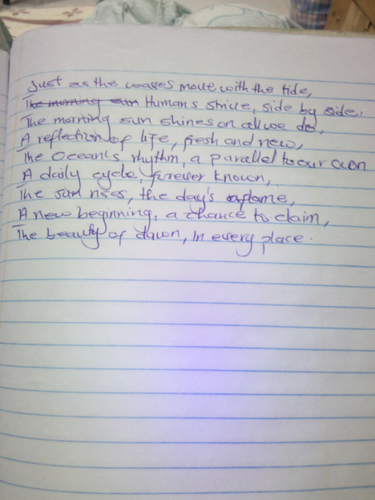 Just as the waves move with the tide,
The morning sun Humans strive, side by side,
The morning sun shines on all we do,
A reflection of life, fresh and new,
The Ocean's rhythm, a parallel to our own
A daily cycle, forever known,
The sun rises, the day's aflame,
A new beginning, a chance to claim,
The beauty of dawn, in every place.